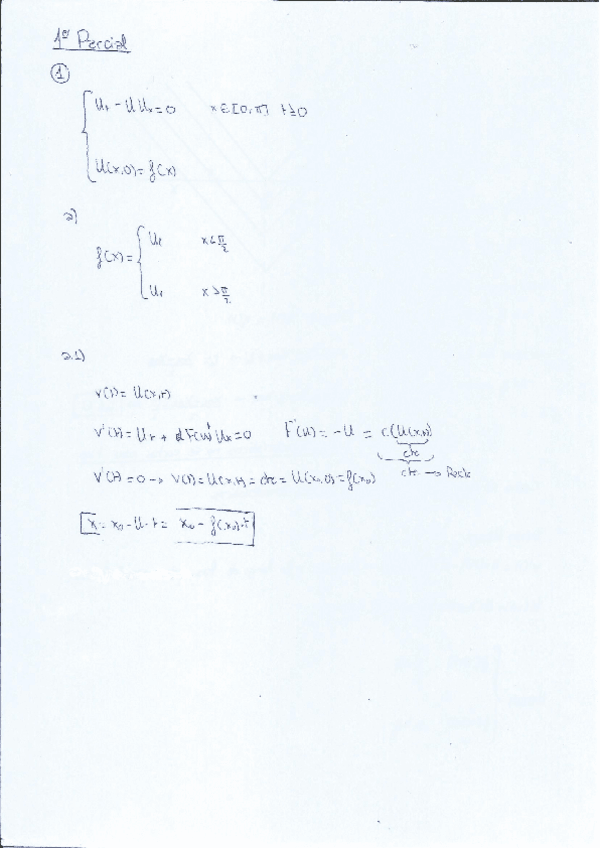 1º Parcial
①
Ut - U Ux = 0   x ∈ [0, π]   t ≥ 0
U(x,0) = f(x)
a)
f(x) =
Ul   x ≤ π/2
Ur   x > π/2
a.1)
V(t) = U(x,t)
V'(t) = Ut + dF(u)' Ux = 0   F'(u) = -U = c(U(x,t))
cte
V'(t) = 0 → V(t) = U(x,t) = cte = U(x0,0) = f(x0)   cte → Recta
x = x0 - U·t = x0 - f(x0)·t